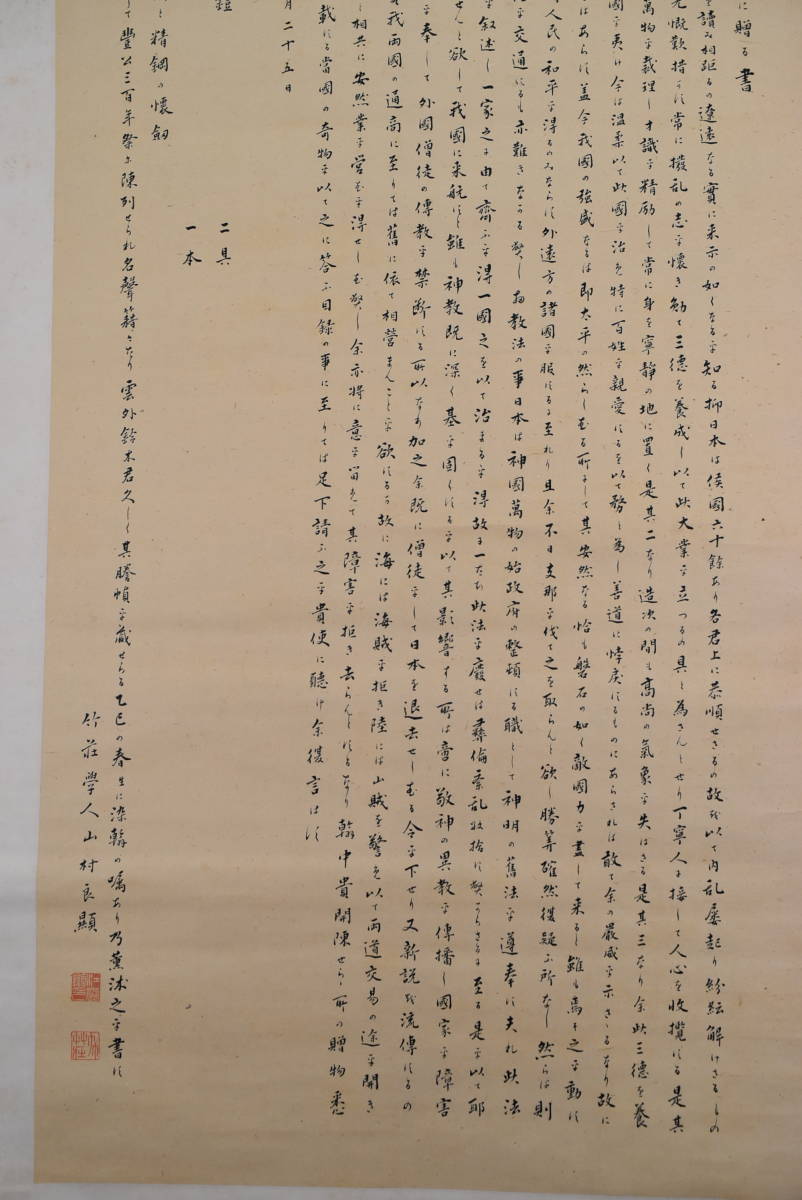 に贈る書
を讀み相距るの遼遠なる實に来示の如くなるを知る抑日本は侯國六十餘あり各君上に恭順せさるの故を以て内乱屡起り紛紜解けさるもの
慨歎措かす常に撥乱の志を懐き勉て三德を養成し以て此大業を立つるの具と為さんとせり丁寧人に接して人心を收攬する是其
萬物を裁理し才識を精励して常に身を寧静の地に置く是其二なり造次の間も高尚の氣象を失はさる是其三なり余此三德を養
國を夷け今は温柔以て此國を治め特に百姓を親愛するを以て務と為し善道に悖戻するものにあらされは敢て余の嚴威を示さゝるなり故に
はあらす蓋今我國の強盛なるは即太平の然らしむる所にして其安然なる恰も磐石の如く敵國力を盡して来ると雖も為に之を動す
人民の和平を得るのみならす外遠方の諸國を服するに至れり且余不日支那を伐て之を取らんと欲し勝筭確然復疑ふ所なし然らは則
に交通するも亦難きなかる可し扨教法の事日本は神國萬物の始政府の整頓する職として神明の舊法を遵奉す夫れ此法
を叙述し一家之に由て齊ふを得一國之を以て治まるを得故に一たひ此法を廢せは彝倫紊乱收拾す可からさるに至る是を以て耶
せんと欲して我國に来航すと雖も神教既に深く基を固くするを以て其影響する所は啻に敬神の異教を傳播し國家を障害
を奉して外國僧徒の傳教を禁断する所以なり加之余既に僧徒をして日本を退去せしむる令を下せり又新説を流傳するの
我両國の通商に至りては舊に依て相營まんことを欲するか故に海には海賊を拒き陸には山賊を警め以て両道交易の途を開き
と相共に安然業を営むを得せしむ可し余亦将に意を留めて其障害を拒き去らんとするなり翰中貴開陳せらし所の贈物悉
載する當國の奇物を以て之に答ふ目録の事に至りては足下請ふ之を貴使に聴け余復言はす
月二十五日
鎧
二具
一本
と精鋼の懐劔
して豐公三百年祭に陳列せられ名聲籍たり雲外鈴木君久しく其勝幀を蔵せらる乙巳の春生に染翰の嘱あり乃薫沐之を書す
竹莊學人山村良顯